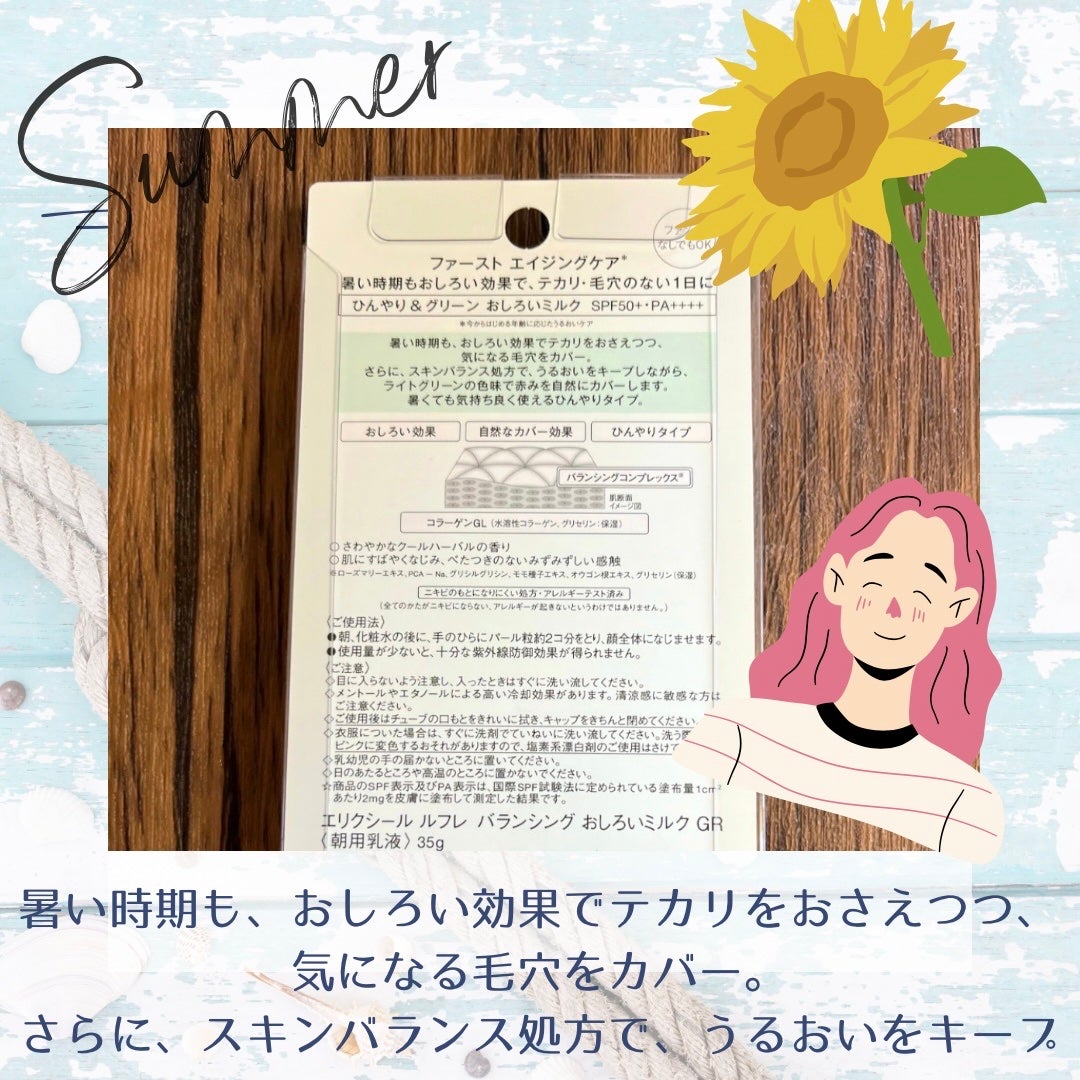 Summer
なしでもOK
ファースト エイジングケア*
暑い時期もおしろい効果で、テカリ・毛穴のない1日に
ひんやり＆グリーン おしろいミルク SPF50+・PA++++
*今からはじめる年齢に応じたうるおいケア
暑い時期も、おしろい効果でテカリをおさえつつ、
気になる毛穴をカバー。
さらに、スキンバランス処方で、うるおいをキープしながら、
ライトグリーンの色味で赤みを自然にカバーします。
暑くても気持ち良く使えるひんやりタイプ。
おしろい効果 自然なカバー効果 ひんやりタイプ
バランシングコンプレックス※
肌断面
イメージ図
コラーゲンGL（水溶性コラーゲン、グリセリン：保湿）
○さわやかなクールハーバルの香り
○肌にすばやくなじみ、べたつきのないみずみずしい感触
※ローズマリーエキス、PCA－Na、グリシルグリシン、モモ種子エキス、オウゴン根エキス、グリセリン（保湿）
ニキビのもとになりにくい処方・アレルギーテスト済み
（全てのかたがニキビにならない、アレルギーが起きないというわけではありません。）
〈ご使用法〉
❶朝、化粧水の後に、手のひらにパール粒約2コ分をとり、顔全体になじませます。
❶使用量が少ないと、十分な紫外線防御効果が得られません。
〈ご注意〉
◇目に入らないよう注意し、入ったときはすぐに洗い流してください。
◇メントールやエタノールによる高い冷却効果があります。清涼感に敏感な方は
ご注意ください。
◇ご使用後はチューブの口もとをきれいに拭き、キャップをきちんと閉めてください。
◇衣服についた場合は、すぐに洗剤でていねいに洗い流してください。洗う
ピンクに変色するおそれがありますので、塩素系漂白剤のご使用はさけて
◇乳幼児の手の届かないところに置いてください。
◇日のあたるところや高温のところに置かないでください。
☆商品のSPF表示及びPA表示は、国際SPF試験法に定められている塗布量1cm²
あたり2mgを皮膚に塗布して測定した結果です。
エリクシール ルフレ バランシング おしろいミルク GR
〈朝用乳液〉35g
暑い時期も、おしろい効果でテカリをおさえつつ、
気になる毛穴をカバー。
さらに、スキンバランス処方で、うるおいをキープ